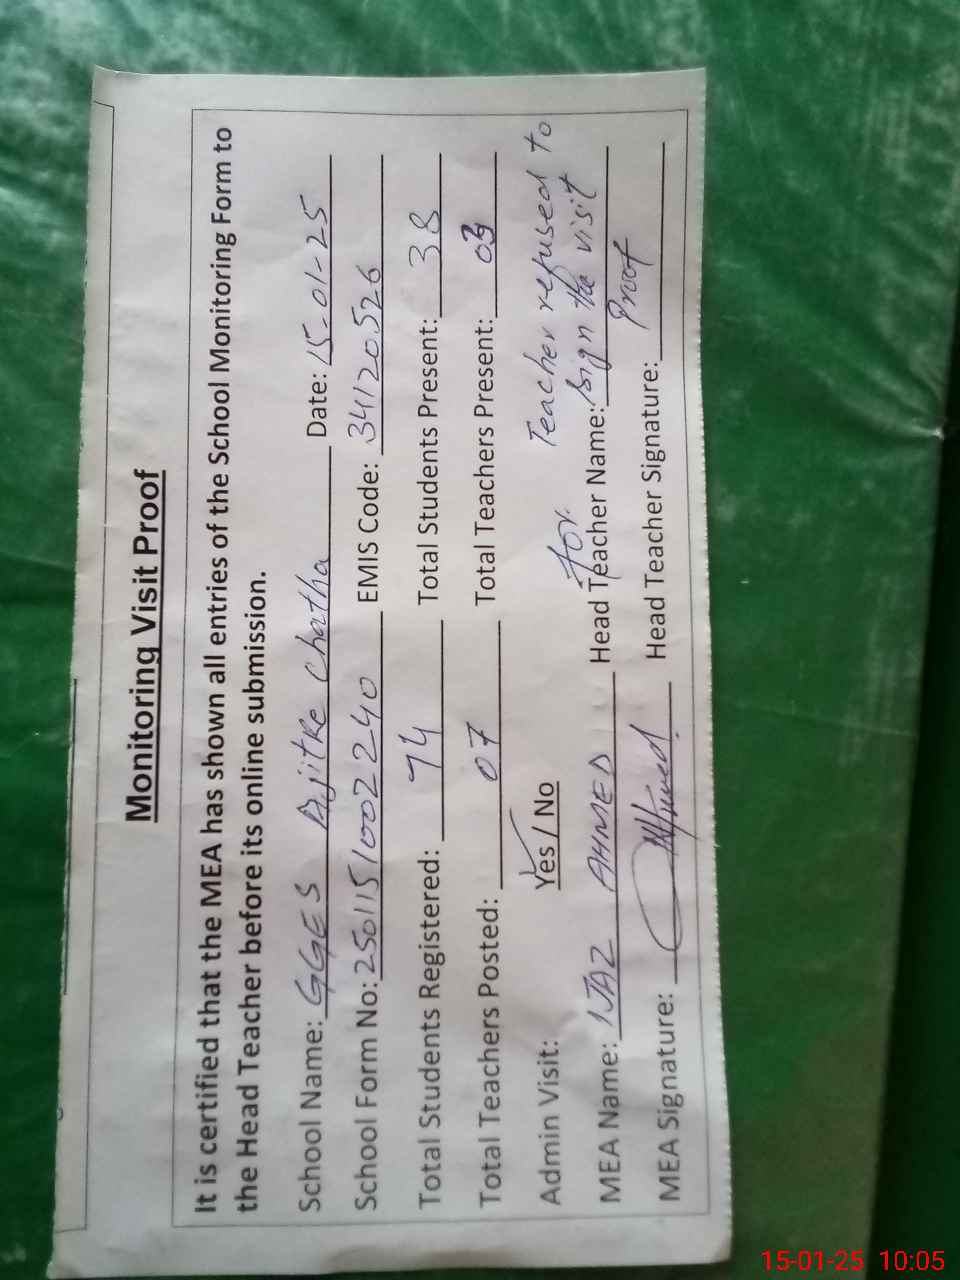 Monitoring Visit Proof
It is certified that the MEA has shown all entries of the School Monitoring Form to
the Head Teacher before its online submission.
School Name: GGES Ajitke Chatha Date: 15-01-25
School Form No: 2501151002240 EMIS Code: 34120526
Total Students Registered: 74 Total Students Present: 38
Total Teachers Posted: 07 Total Teachers Present: 03
Admin Visit: Yes / No for. Teacher refused to
MEA Name: IJAZ AHMED Head Teacher Name: sign the visit
Proof
MEA Signature: Head Teacher Signature:
15-01-25 10:05